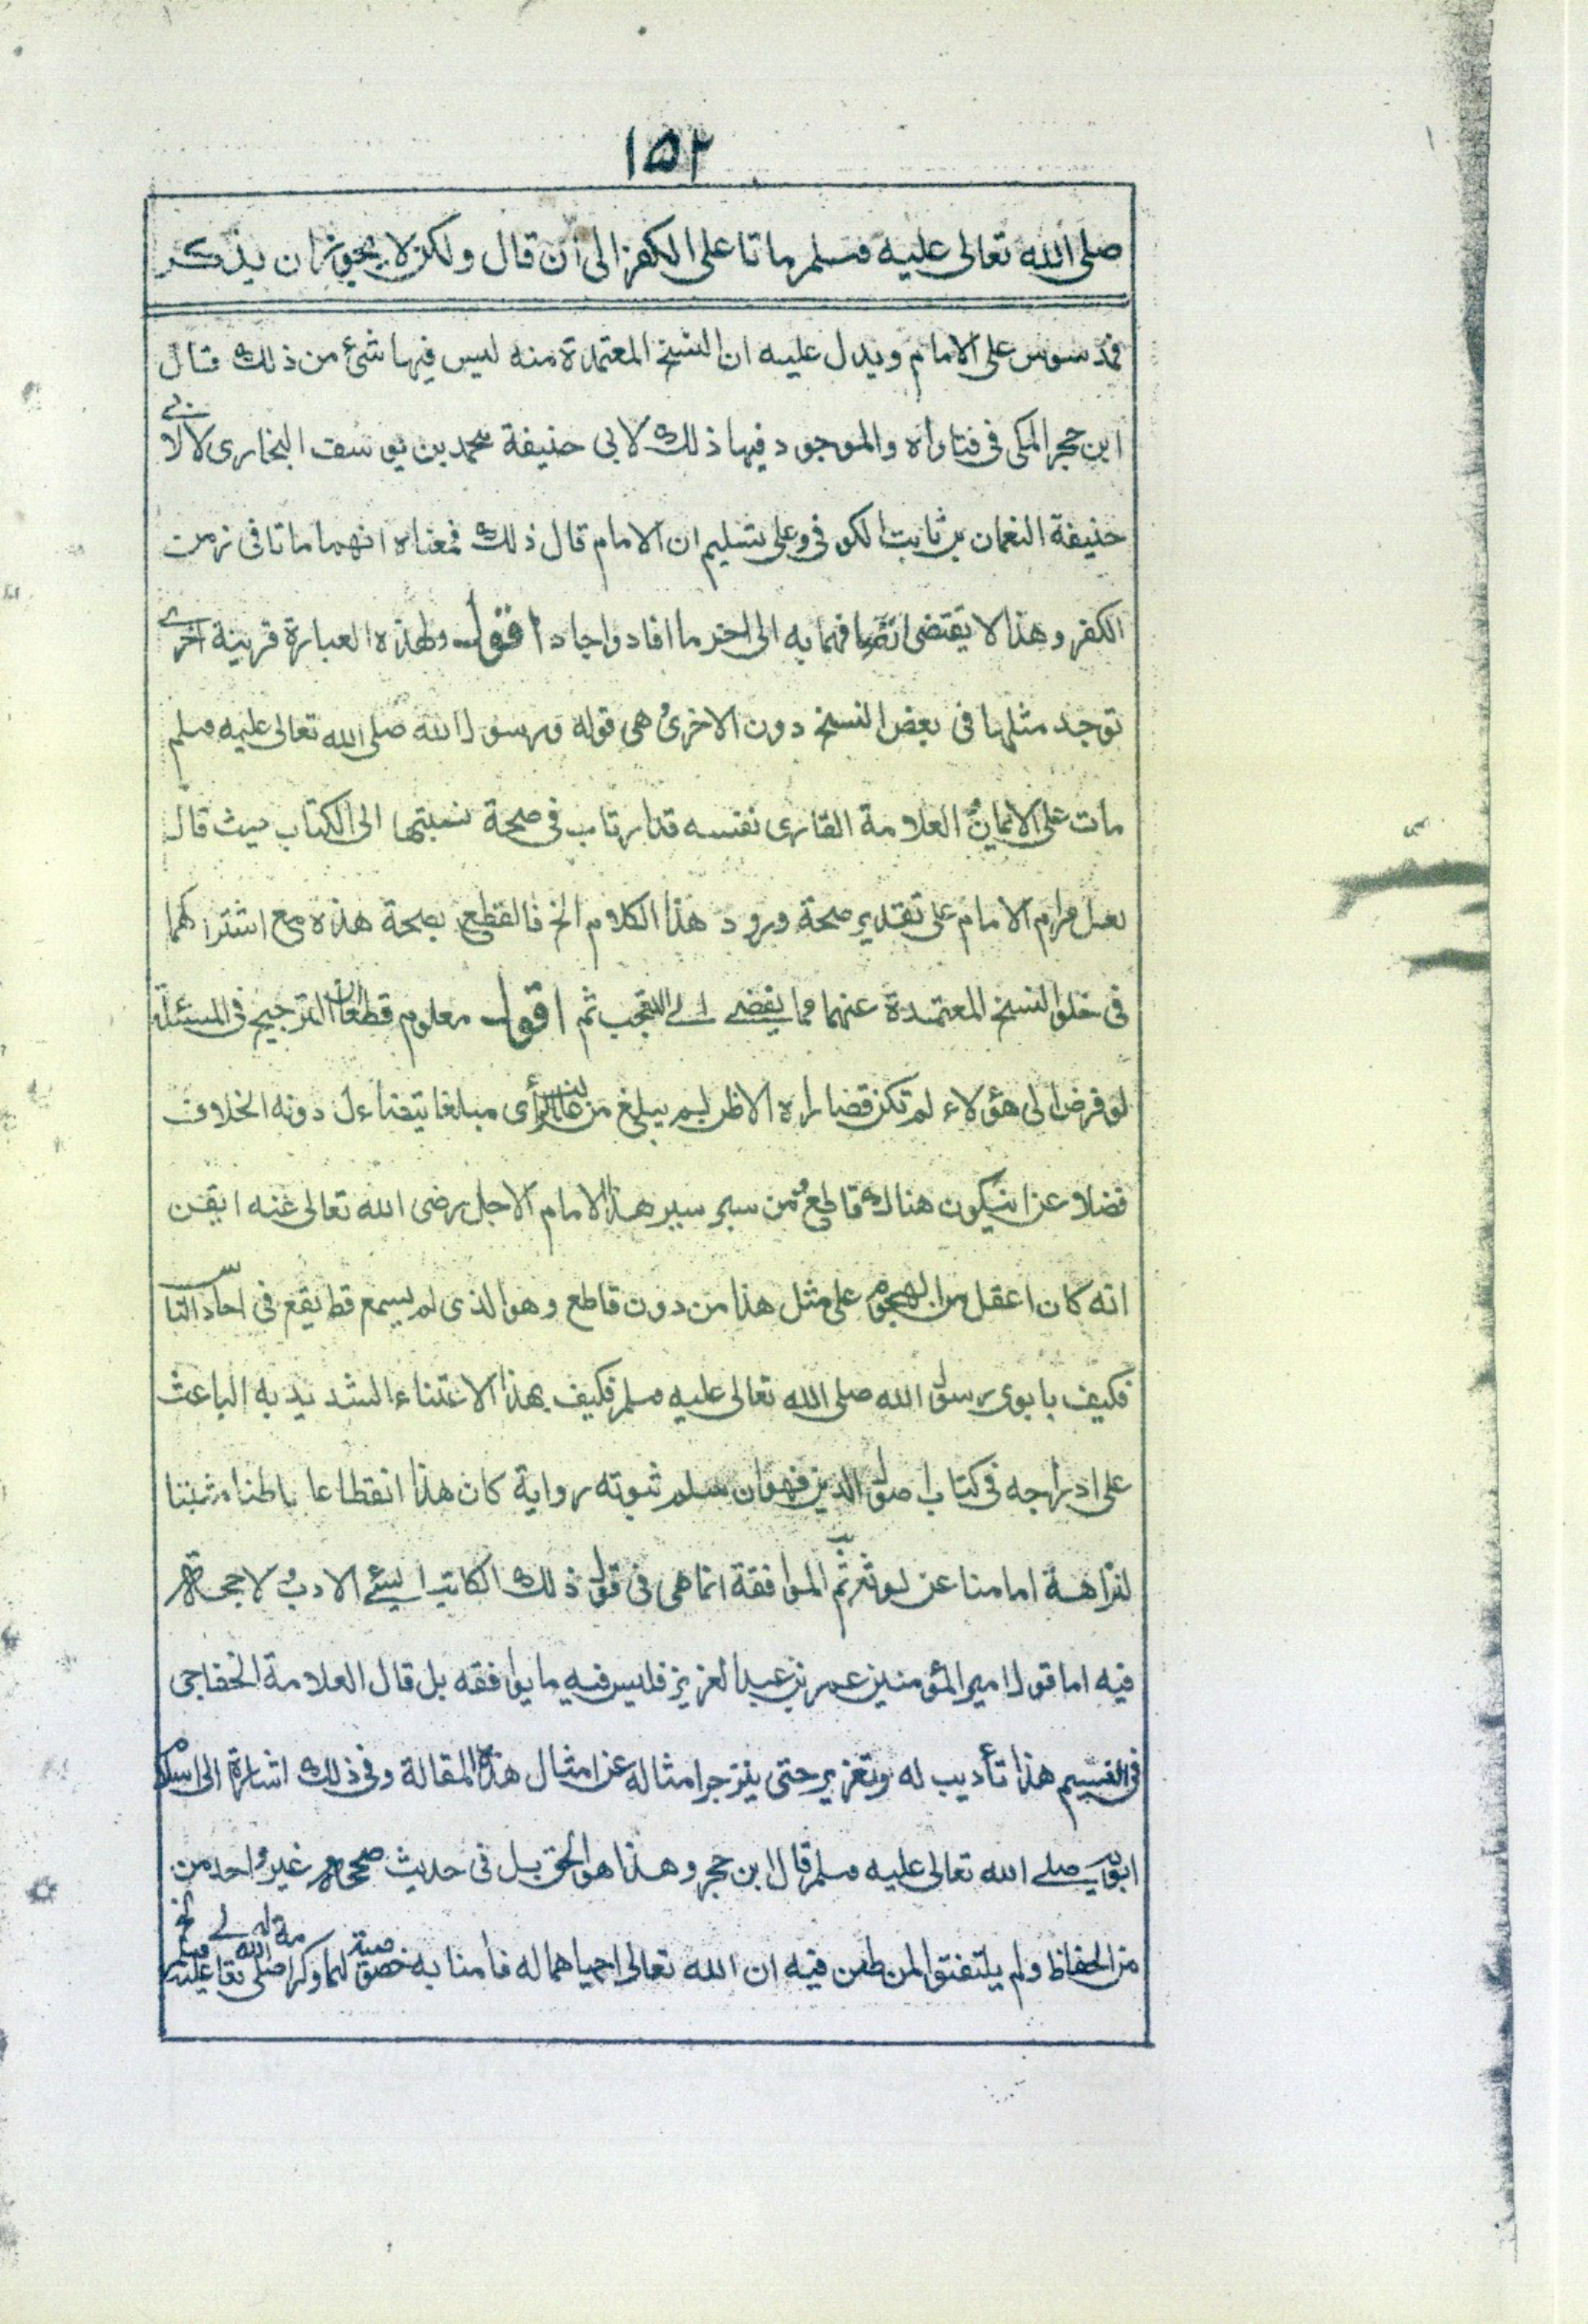 ١٥٢
صلى الله تعالى عليه وسلم ماتا على الكفر الى ان قال ولكن لا يجوز ان يذكر
فمدسوس على الامام ويدل عليه ان النسخ المعتمدة منه ليس فيها شئ من ذلك قال
ابن حجر المكى فى فتاواه والموجود فيها ذلك لابى حنيفة محمد بن يوسف البخارى لا لابى
حنيفة النعمان بن ثابت الكوفى وعلى تسليم ان الامام قال ذلك فمعناه انهما ماتا فى زمن
الكفر وهذا لا يقتضى اتصافهما به الى اخر ما افاد واجاد اقول ولهذه العبارة قرينة اخرى
توجد مثلها فى بعض النسخ دون الاخرى هى قوله ورسول الله صلى الله تعالى عليه وسلم
مات على الايمان العلامة القارى نفسه قد ارتاب فى صحة نسبتها الى الكتاب حيث قال
لعل مرام الامام على تقدير صحة ورود هذا الكلام الخ فالقطع بصحة هذه مع اشتراكهما
فى خلو النسخ المعتمدة عنهما مما يفضى الى التعجب ثم اقول معلوم قطعا ان الترجيح فى المسئلة
لو فرض الى هؤلاء لم تكن قصاراه الا ظن لم يبلغ من غالب الرأى مبلغا يتضاءل دونه الخلاف
فضلا عن ان يكون هناك قاطع ومن سبر سير هذا الامام الاجل رضى الله تعالى عنه ايقن
انه كان اعقل من الهجوم على مثل هذا من دون قاطع وهو الذى لم يسمع قط يقع فى احاد الناس
فكيف بابوى رسول الله صلى الله تعالى عليه وسلم فكيف بهذا الاعتناء الشديد به الباعث
على ادراجه فى كتاب اصول الدين فهو ان سلم ثبوته رواية كان هذا انقطاعا باطنا مثبتا
لنزاهة امامنا عن ثم الموافقة انما هى فى قول ذلك الكاتب السيئ الادب ولا حجة
فيه اما قول امير المؤمنين عمر بن عبد العزيز فليس فيه ما يوافقه بل قال العلامة الخفاجى
فى النسيم هذا تأديب له وتعزير حتى ينزجر امثاله عن امثال هذه المقالة وفى ذلك اشارة الى اسلام
ابويه صلى الله تعالى عليه وسلم قال ابن حجر وهذا هو الحق بل فى حديث صححه غير واحد من
من الحفاظ ولم يلتفتوا لمن طعن فيه ان الله تعالى احياهما له فامنا به خصوصية لهما وكرامة له صلى الله تعالى عليه وسلم الخ